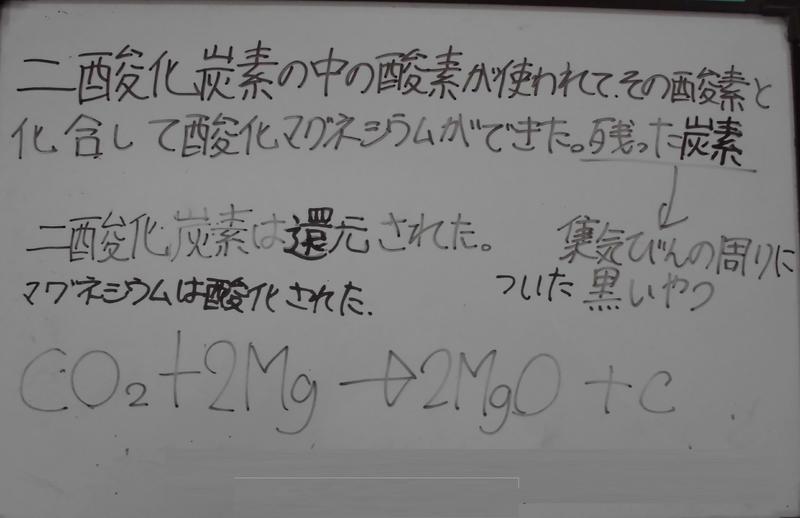 二酸化炭素の中の酸素が使われて、その酸素と
化合して酸化マグネシウムができた。残った炭素
二酸化炭素は還元された。
マグネシウムは酸化された.
集気びんの周りに
ついた黒いやつ
CO₂+2Mg→2MgO+C